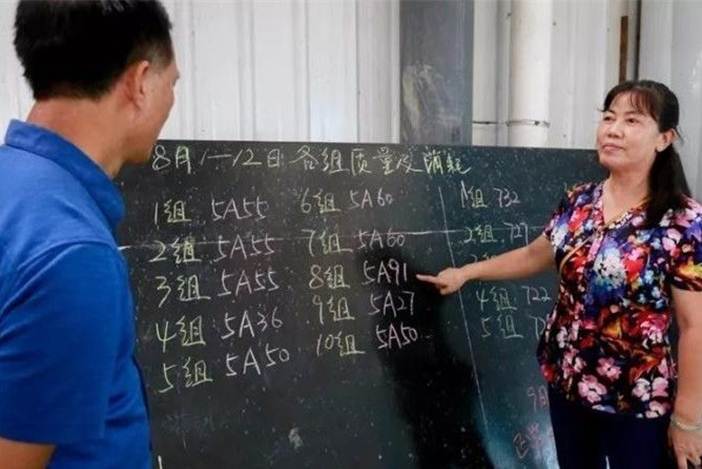 8月1—12日各组质量及消耗
1组 5A55
2组 5A55
3组 5A55
4组 5A36
5组 5A50
6组 5A60
7组 5A60
8组 5A91
9组 5A27
10组 5A50
1组 732
2组 727
4组 722
5组
9月